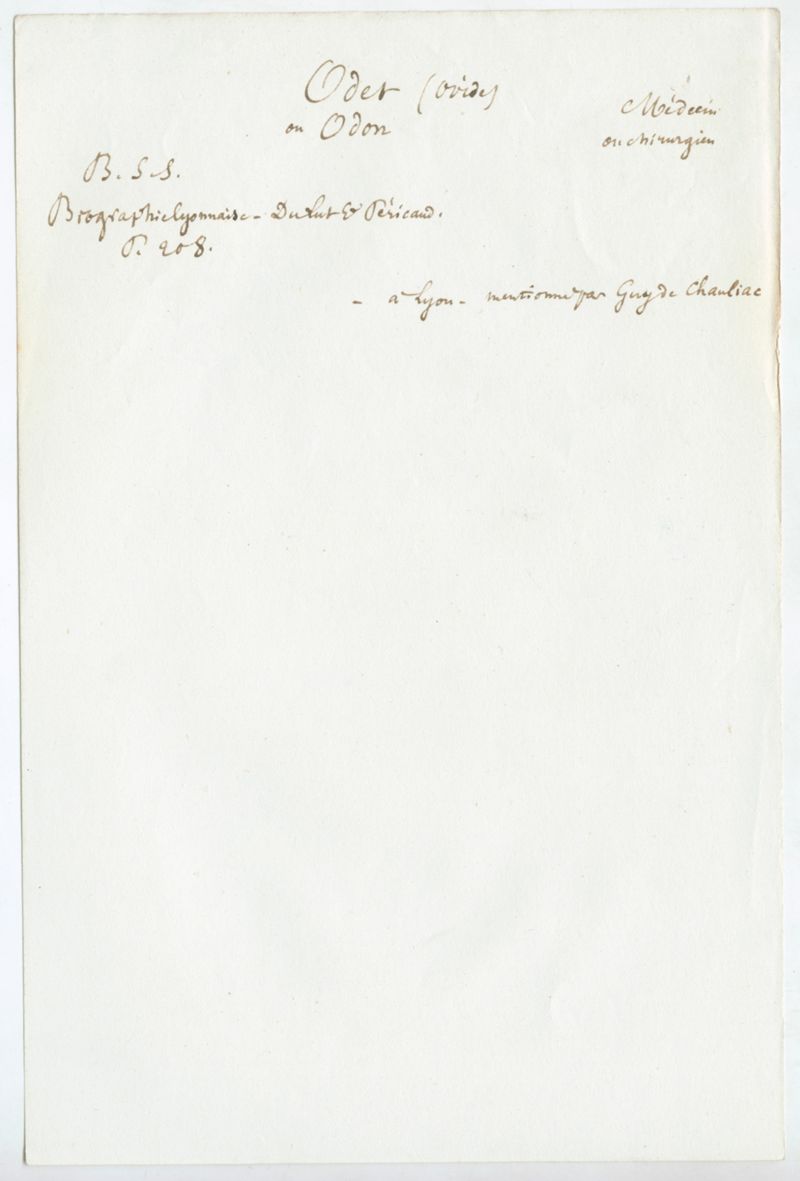 Odet (Ovide)
ou Odon
Médecin
ou chirurgien
B. S. S.
Biographie lyonnaise - Du Lut & Péricaud.
P. 208.
- à Lyon - mentionné par Guy de Chauliac